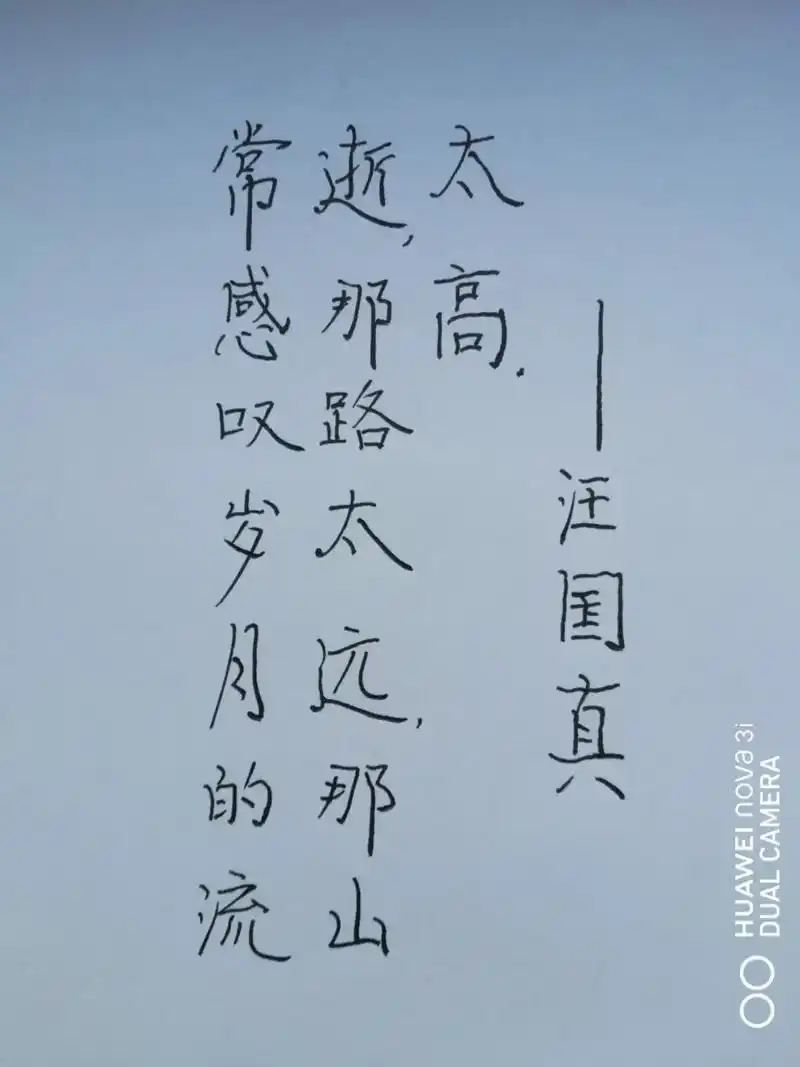 常感叹岁月的流
逝,那路太远,那山
太高.
——汪国真
HUAWEI nova 3i
DUAL CAMERA